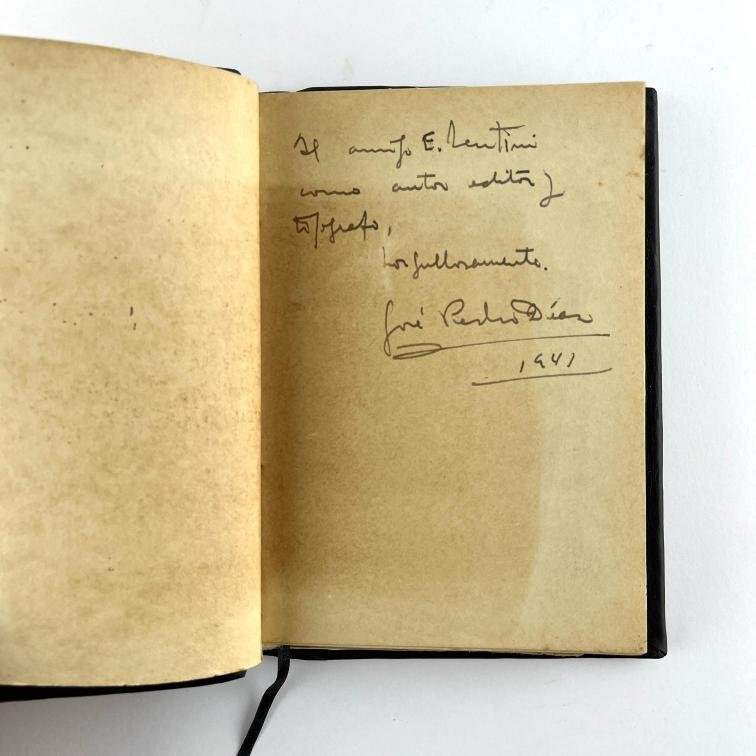 Al amigo E. Lentini
como autor editor y
tipógrafo,
orgullosamente.
José Pedro Díaz
1941